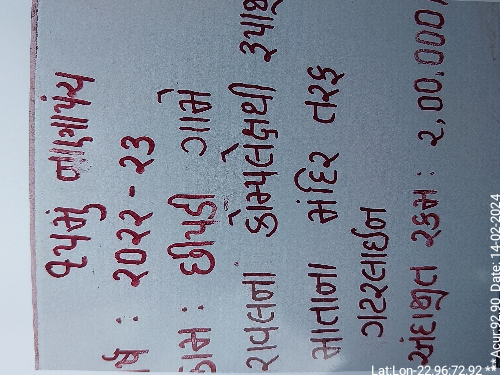 ૧૫મું નાણાપંચ
ર્ષ : ૨૦૨૨ - ૨૩
કામ : છીપડી ગામે
રાવલના કોમ્પલેક્ષથી રૂપા
માતાના મંદિર તરફ
ગટરલાઈન
અંદાજીત રકમ : ૨,૦૦.૦૦૦/
Lat:Lon-22.96:72.92 ***Acu=92.90 Date: 14-02-2024